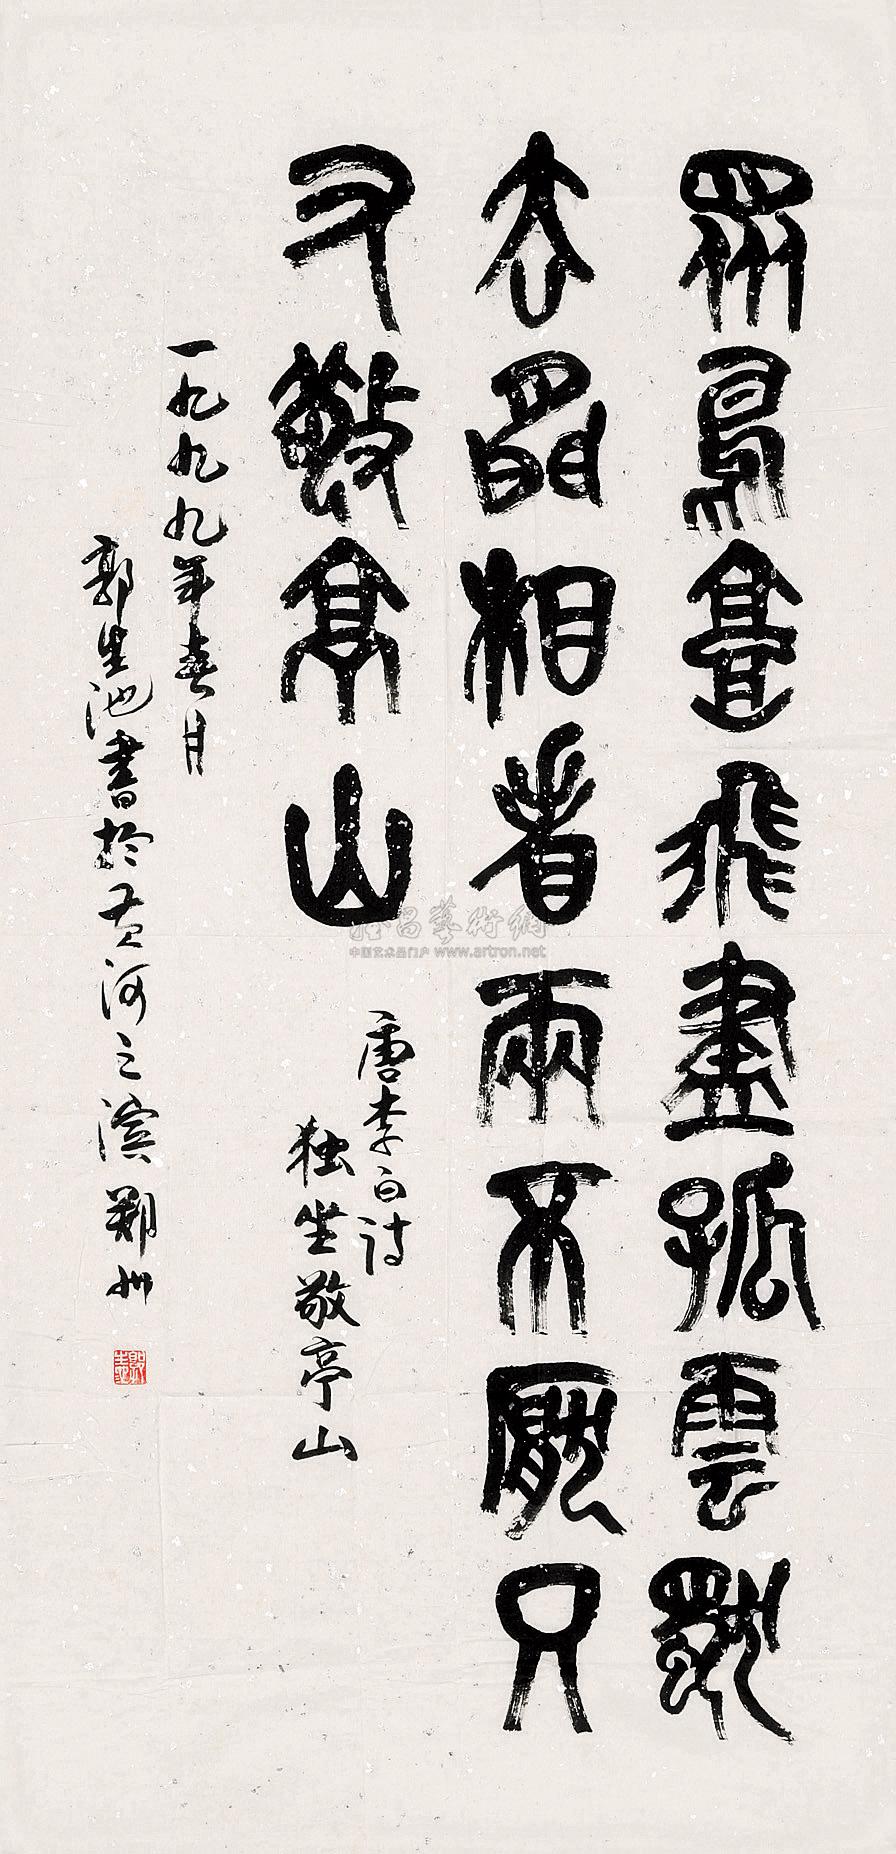 眾鳥高飛盡孤雲獨
去閒相看兩不厭只
又敬亭山
唐李白诗
独坐敬亭山
一九九九年春月
郭生池書於黄河之濱鄭州
雅昌藝術網
中国艺术品门户 www.artron.net